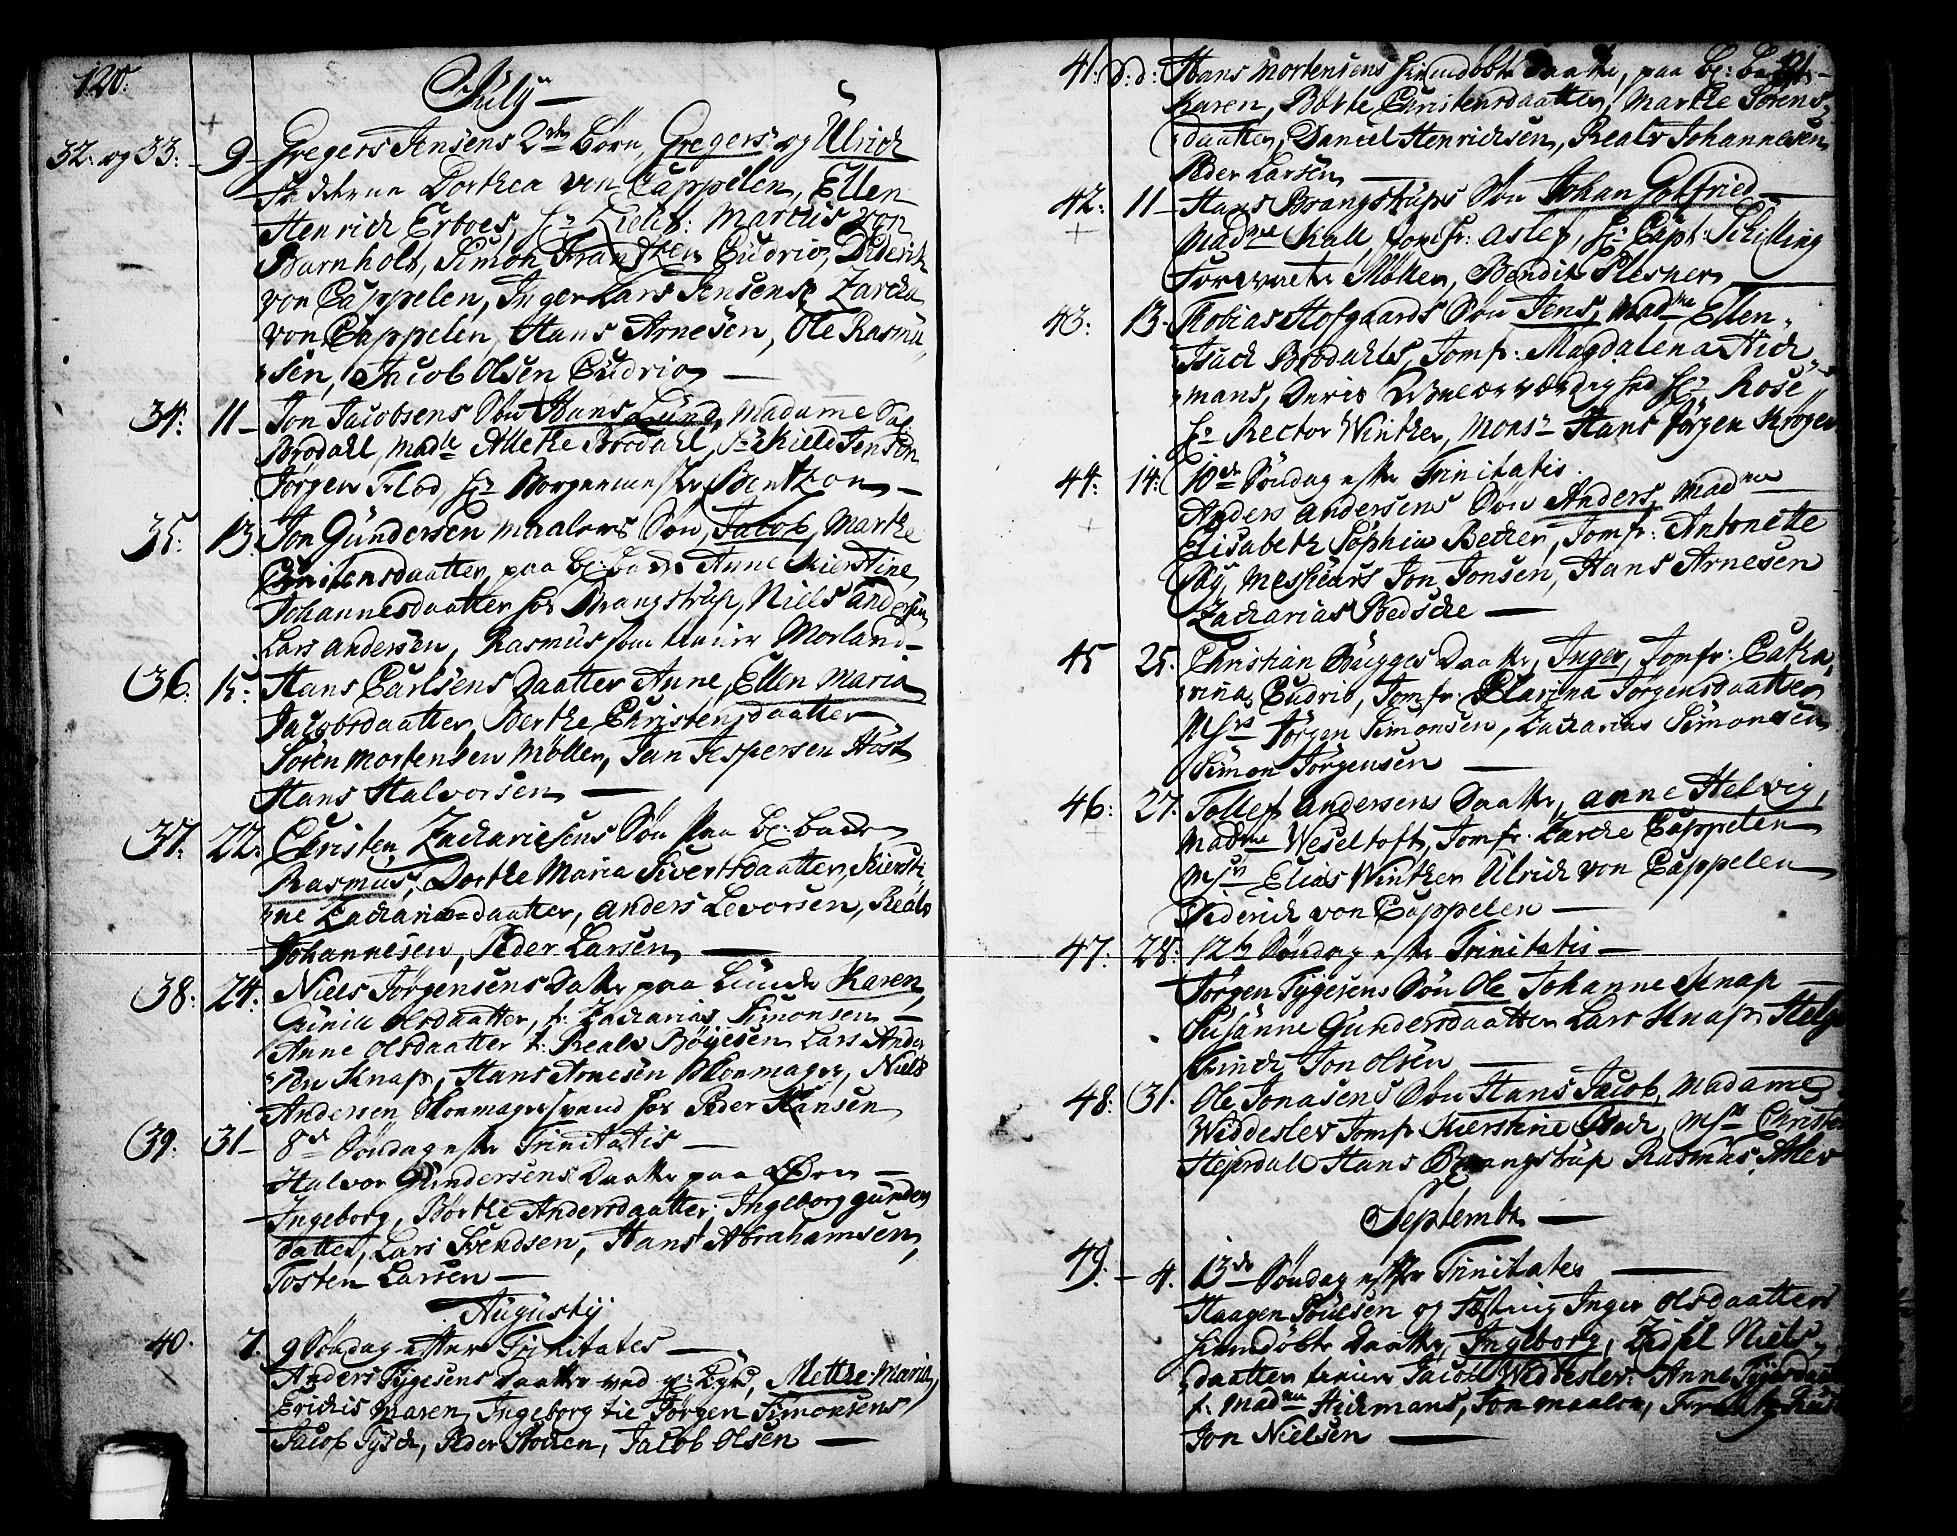 120.
July
32. og 33. 9 Gregers Jensens 2de Börn, Gregers og Ulrich
Fadderne Dorthea von Cappelen, Ellen
Henrich Erboes, Hr Lieut: Marcus von
Barnholt, Simon Frantzen Cudrio, Diderik
von Cappelen, Inger Lars Jensens, Zarcha
von Cappelen, Hans Arnesen, Ole Rasmu,
sen, Jacob Olsen Cudrio
34. 11 Jon Jacobsens Søn Hans Lund, Madame Sal.
Brodahl, Madle Alethe Brodahl, Sr Kield Jensen
Jørgen Flod, Hr Borgermester Bentzon
35. 13 Jon Gündersen maalers Søn, Jacob, Marthe
Christensdaatter, paa Bl: bade Anne Kierstine
Johannesdaatter hos Brangstrup, Niels Andersen
Lars Andersen, Rasmus som tiener Morland
36. 15. Hans Carlsens Daatter Anne, Ellen Maria
Jacobsdaatter, Berthe Christensdaatter
Sören Mortensen Møller, Jan Jespersen Höst
Hans Halvorsen
37. 22. Christen Zachariesens Søn paa Bl: bade
Rasmus, Dorthe Maria Sivertsdaatter, Kiersti
ne Zacharia=daatter, Anders Levorsen, Reals
Johannesen, Peder Larsen
38. 24. Niels Jörgensens Datter paa Lunde Karen
Gunild Olsdaatter, f. Zacharias Simonsen
Anne Olsdaatter t. Reals Böyesen Lars Ander
sen Knap, Hans Arnesen Skomager, Niels
Andersen Skomagersvend hos Peder Hansen
39. 31 8de Söndag efter Trinitatis
Halvor Gundersens Daatter paa Øen
Ingeborg, Börthe Andersdaatter, Ingeborg gunders
datter, Lars Svendsen, Hans Abrahamsen,
Tosten Larsen
Augustij
40. 7. 9 Söndag efter Trinitates
Anders Tygesens Daatter ved Hr: Bye, Mette Maria,
Erichis Maren, Ingeborg tie Jörgen Simonsens
Jacob Tysch, Peder Stocken, Jacob Olsen
121
41. d:d: Hans Mortensens hiemdöbte Daatter, paa Bl: bade
Karen, Börte Christensdaatter, Marthe Sörens
daatter, Daniel Henrichsen, Reals Johannesen
Peder Larsen
42. 11 Hans Brangstrups Søn Johan Gotfried
Madme Kall, Jomfr: Aslef, Hr Capt: Schilling
Møller, Bendix Plesner
43. 13. Tobias Hofgaards Søn Jens, Madme Ellen
Isach Brodahls, Jomfr: Magdalena Hich
mans, Deris Velærværdighed Hr Rose
Hr Rector Winther, Monsr Hans Jørgen Krøger
44. 14. 10de Söndag efter Trinitatis.
Anders Andersens Søn Anders, Madme
Elisabeth Sophia Becher, Jomfr: Antonette
Say, Meshieurs Jon Jonsen, Hans Arnesen
Zacharias Bedsche
45 25. Christian Bugges Daatter, Inger, Jomfr: Catha,
rina Cudrio, Jomfr: Clarina Jörgensdaatter
Msrs Jörgen Simonsen, Zacharias Simonsen
Simon Jörgensen
46. 27. Tollef Andersens Daatter, Anne Helvig,
Madme Weseltoft, Jomfr. Zarche Cappelen
Msrs Elias Winther Ulrich von Cappelen
Diderich von Cappelen
47. 28. 12te Söndag efter Trinitatis
Jörgen Tygesens Søn Ole Johanne Knap
Susanne Gundersdaatter Lars Knap, Helge
Finch Jon Olsen
48. 31. Ole Jonasens Søn Hans Jacob, Madame
Widdeslev Jomfr Kierstine Oech, Msrs Christen
Hejerdal Hans Brangstrup Rasmus Alev
Septembr
49. 4. 13de Söndag efter Trinitates
Haagen Poulsen og Fæstemø Inger Olsdaatters
hiemdöbte Daatter, Ingeborg, Zidsel Niels
daatter tiener Jacob Widdeslev: Anne Tygesdaatter
f. Madme Hichmans, Jon maaler, Frantz Rust
Jon Nielsen